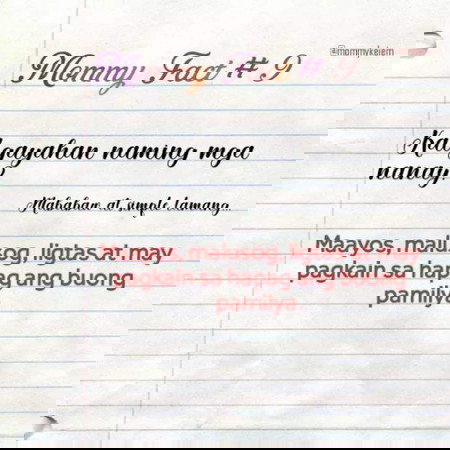 @mommykelem
Mommy Fact # 9
Kagayahan naming mga
nanay?
Mababaw at simple lamang.
Maayos, malusog, ligtas at may
pagkain sa hapag ang buong
pamilya.